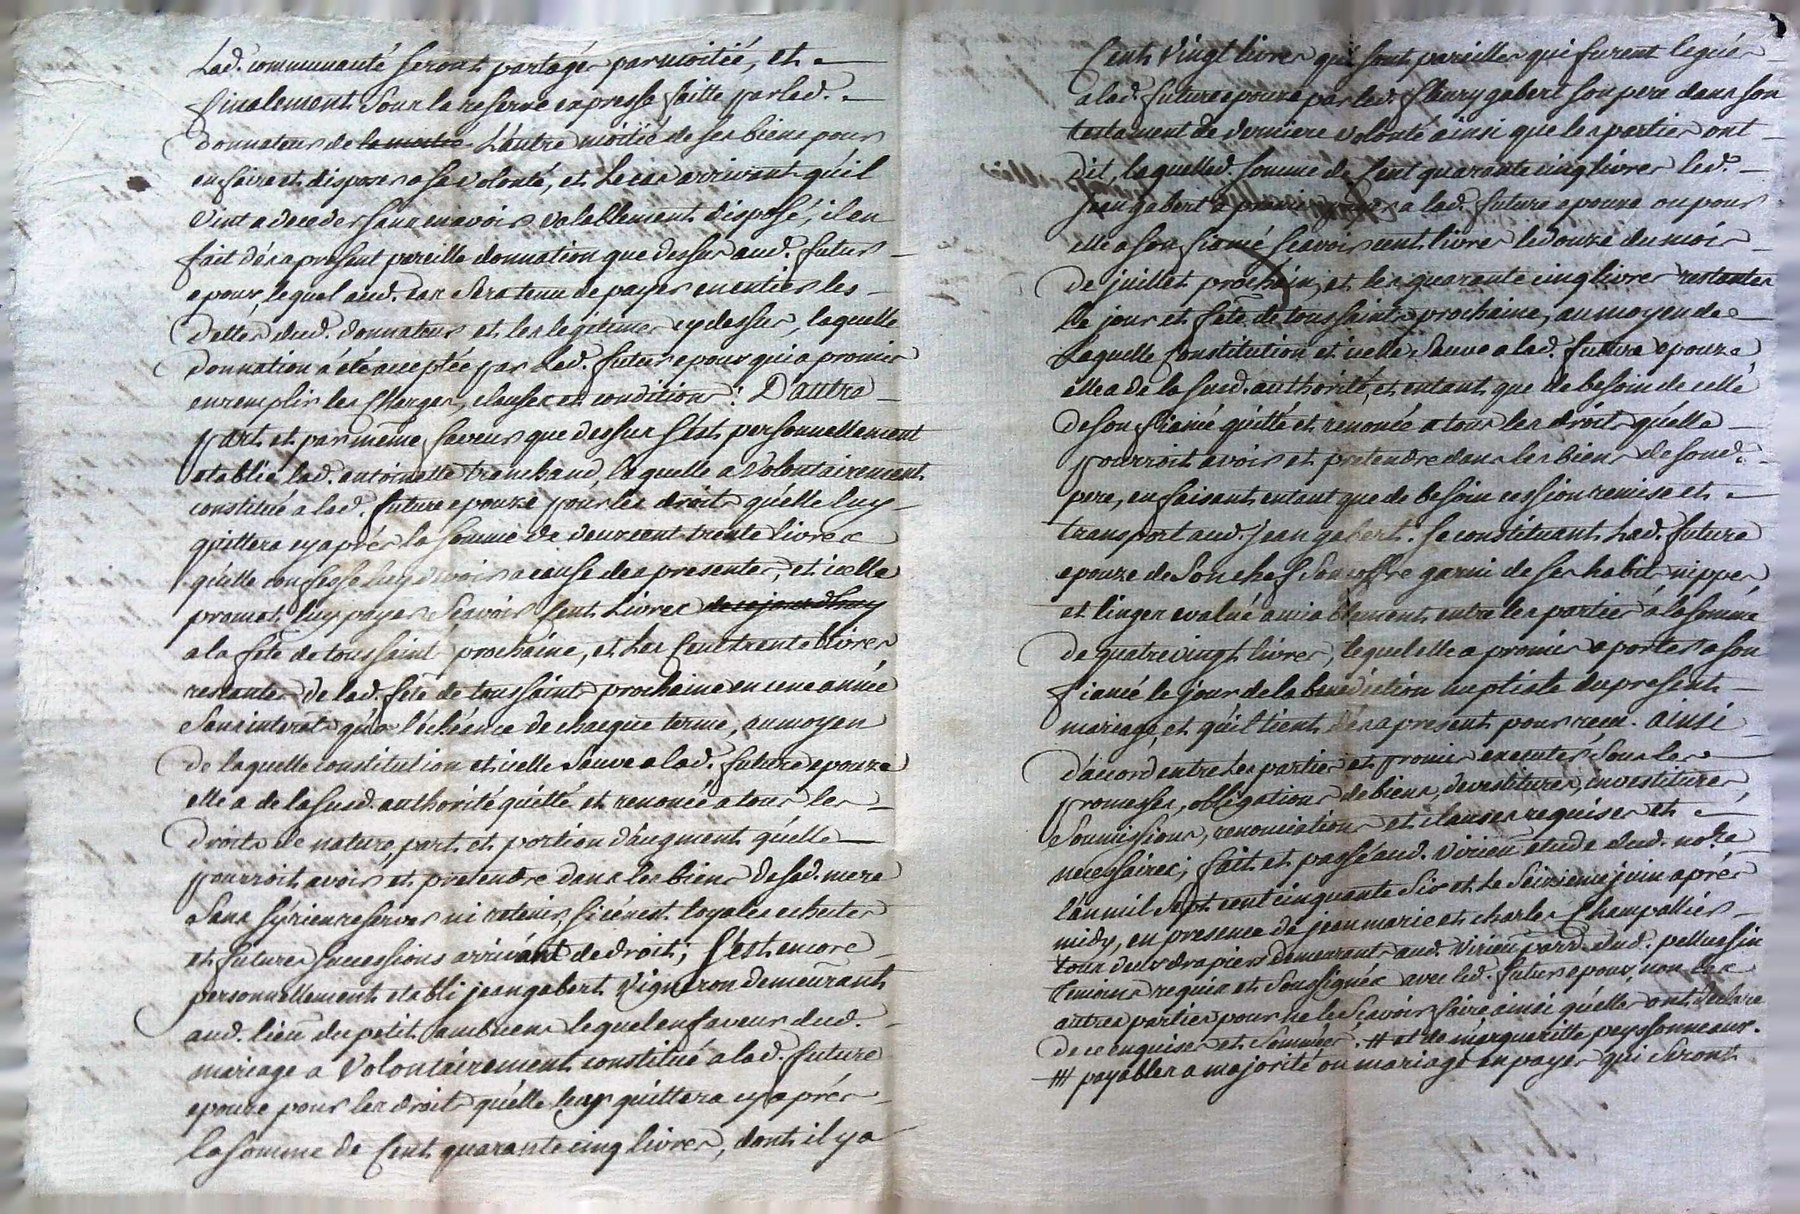 Lad. communauté seront partagés par moitié, et
finalement sous la reserve expresse faitte par led.
donnateur de la moitié L'autre moitié de ses biens pour
en faire et disposer a sa volonté, et le cas arrivant qu'il
vint a deceder sans en avoir valablement disposé, il en
fait dés a present pareille donnation que dessus aud. futur
epoux, lequel aud. cas sera tenu de payer en entier les
dettes dud. donnateur et les legitimes cy dessus, laquelle
donnation a été acceptée par led. futur epoux qui a promis
en remplir les charges, clauses et conditions: D'autre
part et par même faveur que dessus s'est personnellement
etablie lad. antoinette tranchand, laquelle a volontairement
constitué a lad. future epouze pour les droits qu'elle luy
quittera cy aprés la somme de deux cent trente livres
qu'elle confesse luy devoir a cause des presentes, et icelle
promet luy payer scavoir cent livres de ce jourdhuy
a la fête de toussaint prochaine, et les cent trente livres
restantes de lad. fête de toussaint prochaine en une année
sans interet qu'a l'echéance de chaque terme, au moyen
de laquelle constitution et icelle sauve a lad. future epouze
elle a de la susd. authorité quitté et renoncé a tous les
droits de nature, part et portion d'augment qu'elle
pourroit avoir et pretendre dans les biens de sad. mere
sans s'y rien reserver ni retenir, si ce n'est loyales echutes
et futures successions arrivant de droit; s'est encore
personnellement etabli jean gabert vigneron demeurant
aud. lieu du petit ambuens lequel en faveur dud.
mariage a volontairement constitué a lad. future
epouze pour les droits qu'elle luy quittera cy aprés
la somme de cent quarante cinq livres, dont il y a
cent vingt livres qui sont pareilles qui furent legués
a lad. future epouze par led. fleury gabert son pere dans son
testament de derniere volonté ainsi que les parties ont
dit, laquelle d. somme de cent quarante cinq livres led.
jean gabert a promis payer a lad. future epouze ou pour
elle a son fiancé scavoir cent livres le douze du mois
de juillet prochain, et les quarante cinq livres restantes
le jour et fête de toussaint prochaine, au moyen de
laquelle constitution et icelle sauve a lad. future epouze
elle a de la susd. authorité, et entant que de besoin de celle
de son fiancé quitté et renoncé a tous les droits qu'elle
pourroit avoir et pretendre dans les biens de sond.
pere, en faisant entant que de besoin cession remise et
transport aud. jean gabert. Se constituant lad. future
epouze de son chef son coffre garni de ses habits nippes
et linges evalué amiablement entre les parties a la somme
de quatre vingt livres, lequel elle a promis aporter a son
fiancé le jour de la benediction nuptiale du present
mariage, et qu'il tient dés a present pour recu. ainsi
d'accord entre les parties et promis executer sous les
promesses, obligations de biens, devestitures, investitures,
soumissions, renonciations et clauses requises et
necessaires; fait et passé aud. Virieu etude dud. no.re
l'an mil sept cent cinquante six et le seizieme juin aprés
midy, en presence de jean marie et charles Champallier
tous deux drapiers demeurants aud. Virieu parr. dud. pellussin
temoins requis et soussignés avec led. futur epoux, non les
autres parties pour ne le scavoir faire ainsi qu'elles ont declaré
de ce enquises et sommées. # et de margueritte peyssonneaux.
## payables a majorité ou mariage en payer qui seront